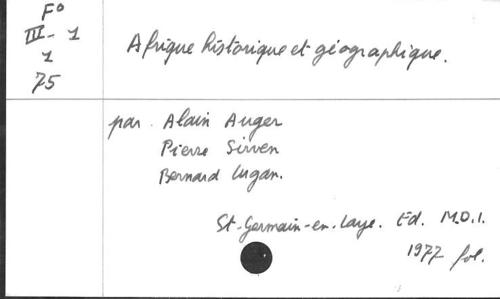 F°
III - 1
1
75
Afrique historique et géographique.
par Alain Auger
Pierre Sirven
Bernard Lugan.
St-Germain-en-Laye. Ed. M.D.I.
1977 fol.